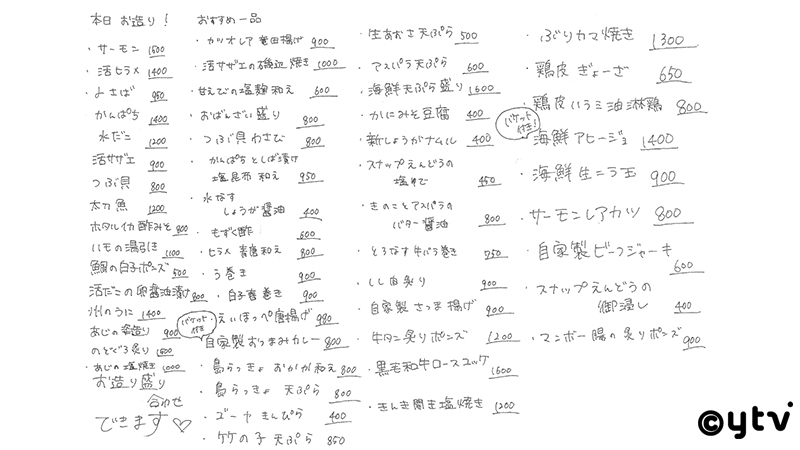 本日お造り!
・サーモン 1500
・活ヒラメ 1400
・よさば 950
かんぱち 1400
水だこ 1200
活サザエ 900
つぶ貝 800
太刀魚 1200
ホタルイカ酢みそ 800
ハモの湯引き 1100
鯛の白子ポンズ 500
活だこの卵醤油漬け 800
1400
あじの姿造り 900
のどぐろ炙り 1500
・あじの塩焼き 1000
お造り盛り
合わせ
できます♡
おすすめ一品
・カツオレア竜田揚げ 900
・活サザエの磯辺焼き 1000
・甘えびの塩麹和え 600
・おばんざい盛り 800
・つぶ貝わさび 800
・かんぱちとしば漬け
塩昆布和え 950
・水なす
しょうが醤油 400
・もずく酢 600
・ヒラメ青唐和え 800
・う巻き 900
・白子春巻き 900
バケット付き
・えいほっぺ唐揚げ 980
自家製おつまみカレー 800
・島らっきょおかか和え 800
・島らっきょ天ぷら 800
・ゴーヤきんぴら 400
・竹の子天ぷら 850
・生あおさ天ぷら 500
・アスパラ天ぷら 600
・海鮮天ぷら盛り 1600
・かにみそ豆腐 400
・新しょうがナムル 400
・スナップえんどうの
塩ゆで 450
・きのことアスパラの
バター醤油 800
・とろなす牛バラ巻き 750
・しし肉炙り 900
・自家製さつま揚げ 900
・牛タン炙りポンズ 1200
・黒毛和牛ロースユッケ 1600
・きんき開き塩焼き 1200
・ぶりカマ焼き 1300
・鶏皮ぎょーざ 650
・鶏皮ハラミ油淋鶏 800
バケット付き!
海鮮アヒージョ 1400
・海鮮生ニラ玉 900
・サーモンレアカツ 800
・自家製ビーフジャーキ
600
・スナップえんどうの
御浸し 400
・マンボー腸の炙りポンズ 900
©ytv